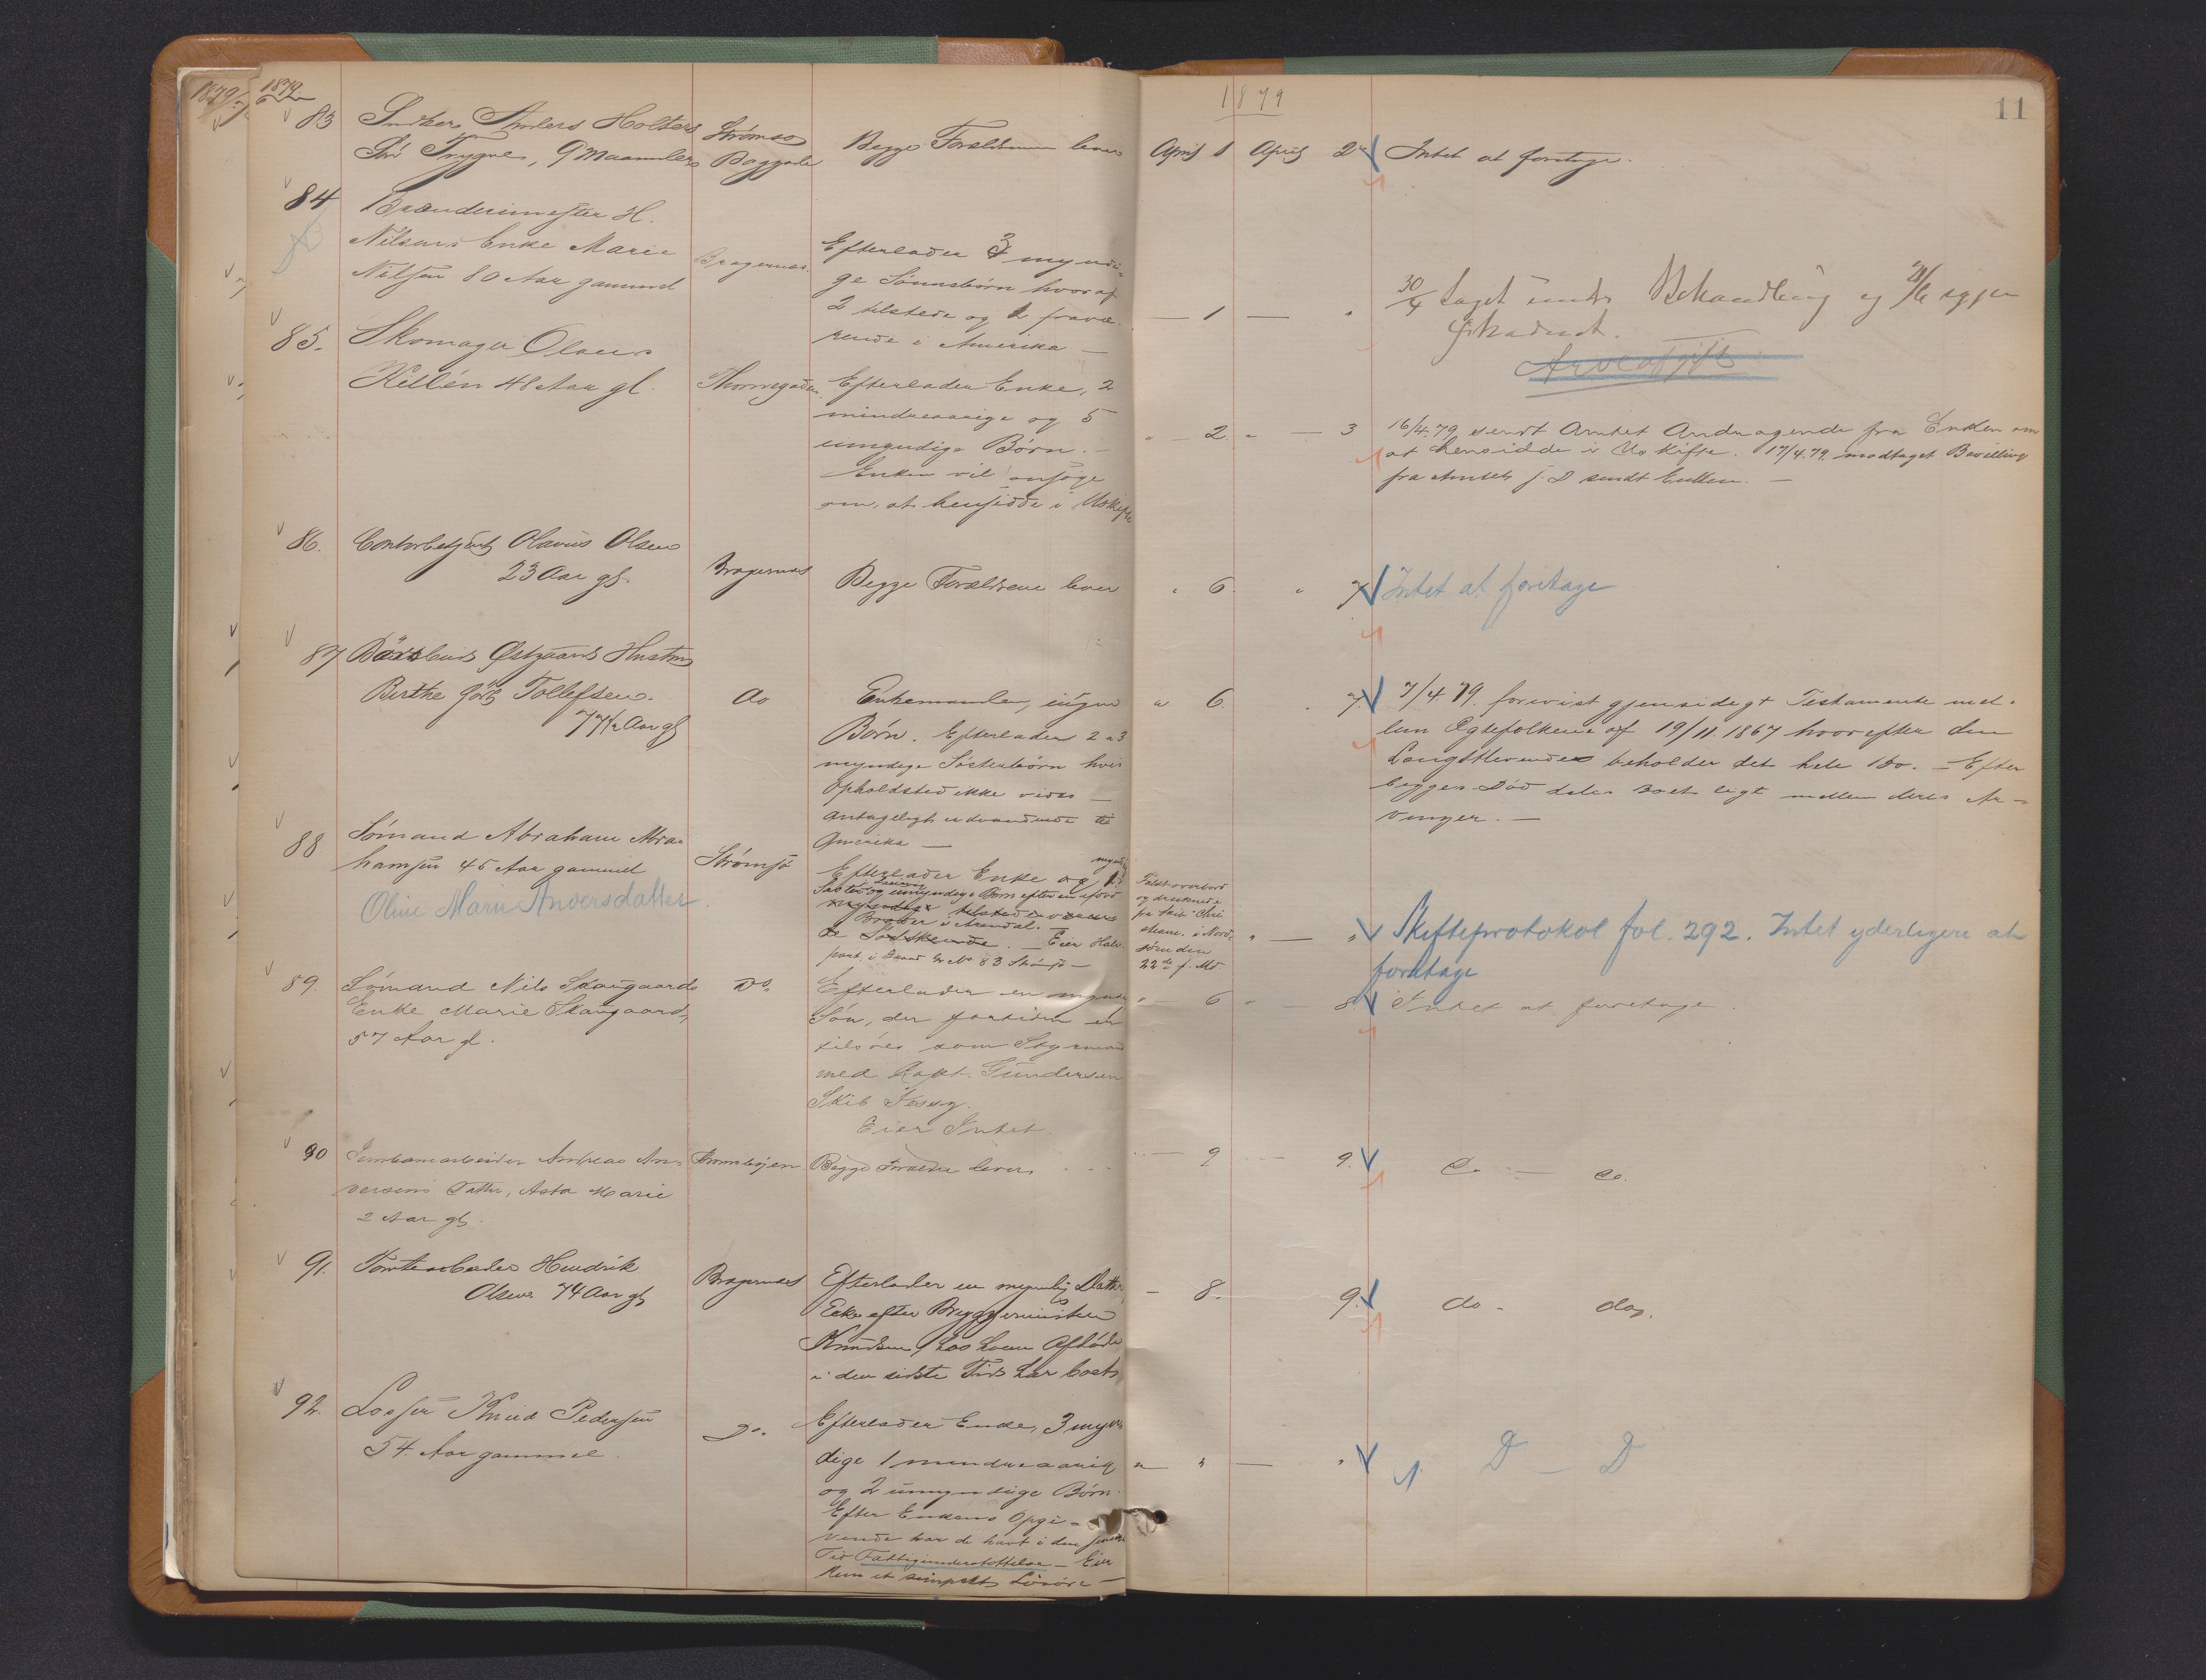 1879
1879
1879
11
83 Snedker Anders Holters
Søn Trygve, 9 Maaneder
Strømsø
Baggade
Begge Forældrene lever
April 1 April 2
Intet at foretage.
84 Brændevinsmester H.
Nilsens Enke Marie
Nilsen 80 Aar gammel
Bragernæs
Efterlader 3 myndi-
ge Sønnebørn hvoraf
2 tilstede og 1 fravæ-
rende i Amerika —
— 1 — "
30/4 taget under Behandling og
Arveafgift
85. Skomager Olaus
Killén 48 Aar gl.
Thornegaden
Efterlader Enke, 2
mindreaarige og 5
umyndige Børn. —
Enken vil ansøge
om, at hensidde i Uskifte
" — 2. " — 3
16/4.79 sendt Amtet Andragende fra Enken om
at hensidde i Uskifte. 17/4.79. modtaget Bevilling
fra Amtet s. D sendt Enken. —
86. Contorbetjent Olavus Olsen
23 Aar gl.
Bragernæs
Begge Forældrene lever
" 6. " 7
Intet at foretage
87 Østgaards Hustru
Birthe født Tollefsen.
77½ Aar gl
do
Enkemanden, ingen
Børn. Efterlader 2 a 3
myndige Søsterbørn hvis
Opholdsted ikke vides —
antageligt udvandrede til
Amerika —
" 6. " 7.
7/4.79. forevist gjensidigt Testamente mel-
lem Egtefolkene af 19/11.1867 hvorefter den
Længstlevende beholder det hele Bo. — Efter
begges Død deles Boet ligt mellem deres Ar-
vinger. —
88 Sømand Abraham Abra-
hamsen 45 Aar gammel
Oline Marie Andersdatter.
Strømsø
Efterlader Enke og 1
myndig
Søster og umyndige Børn efter en afdød
Broder i Arendal.
— Eier Halv-
part i Gaard No 83 Strømsø —
Faldt overbord
og druknede
fra Skib Chri
stiane. i Nord-
søen den
22de f. Md.
" — "
Skifteprotokol fol. 292. Intet yderligere at
foretage
89. Sømand Nils Skaugaards
Enke Marie Skaugaard,
57 Aar gl.
Do
Efterlader en myndig
Søn, der fortiden er
tilsøes som Styrmand
med Kapt. Gundersen
Skib
Eier Intet.
" — 6 " — 8.
Intet at foretage.
90 Jernbanearbeider Andreas An-
dersens Datter, Asta Marie
2 Aar gl.
Begge Forældre lever
— 9 — 9.
do. — do.
91. Tomtearbeider Hendrik
Olsen. 74 Aar gl
Bragernæs
Efterlader en myndig Datter,
Enke efter Bryggermester
Knudsen, hos hvem Afdøde
i den sidste Tid har boet
— 8. 9.
do - do.
92. Losser Knud Pedersen
54. Aar gammel.
Do.
Efterlader Enke, 3 myn-
dige 1 mindreaarig
og 2 umyndige Børn.
Efter Enkens Opgi-
vende har de havt i den senere
Tid Fattigunderstøttelse — Eier
kun et simpelt Løsøre —
" — " — "
D — D